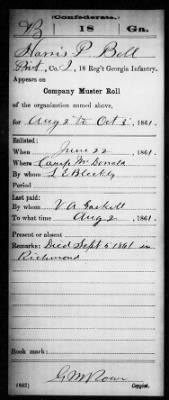 (Confederate.)
B 18 Ga.
Harris P. Bell
Pvt, Co. I, 18 Reg't Georgia Infantry.
Appears on
Company Muster Roll
of the organization named above,
for Aug 2 to Oct 3, 1861.
Enlisted:
When June 22, 1861.
Where Camp McDonald
By whom L E Bleckly
Period
Last paid:
By whom V A Gaskill
To what time Aug 2, 1861.
Present or absent
Remarks: Died Sept 5 1861 in
Richmond
Book mark:
(642) Copyist.